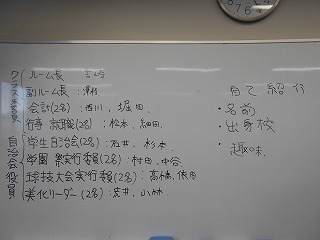 クラス委員
ルーム長 吉崎
副ルーム長：澤村
会計(2名)：西川、堀田
行事 就職(2名)：松本、細田
自治会役員
学生自治会(2名)：石井、杉本
学園祭実行委員(2名)：村田、中谷
球技大会実行委員(2名)：高橋、依田
美化リーダー(2名)：荒井、小林
自己紹介
・名前
・出身校
・趣味